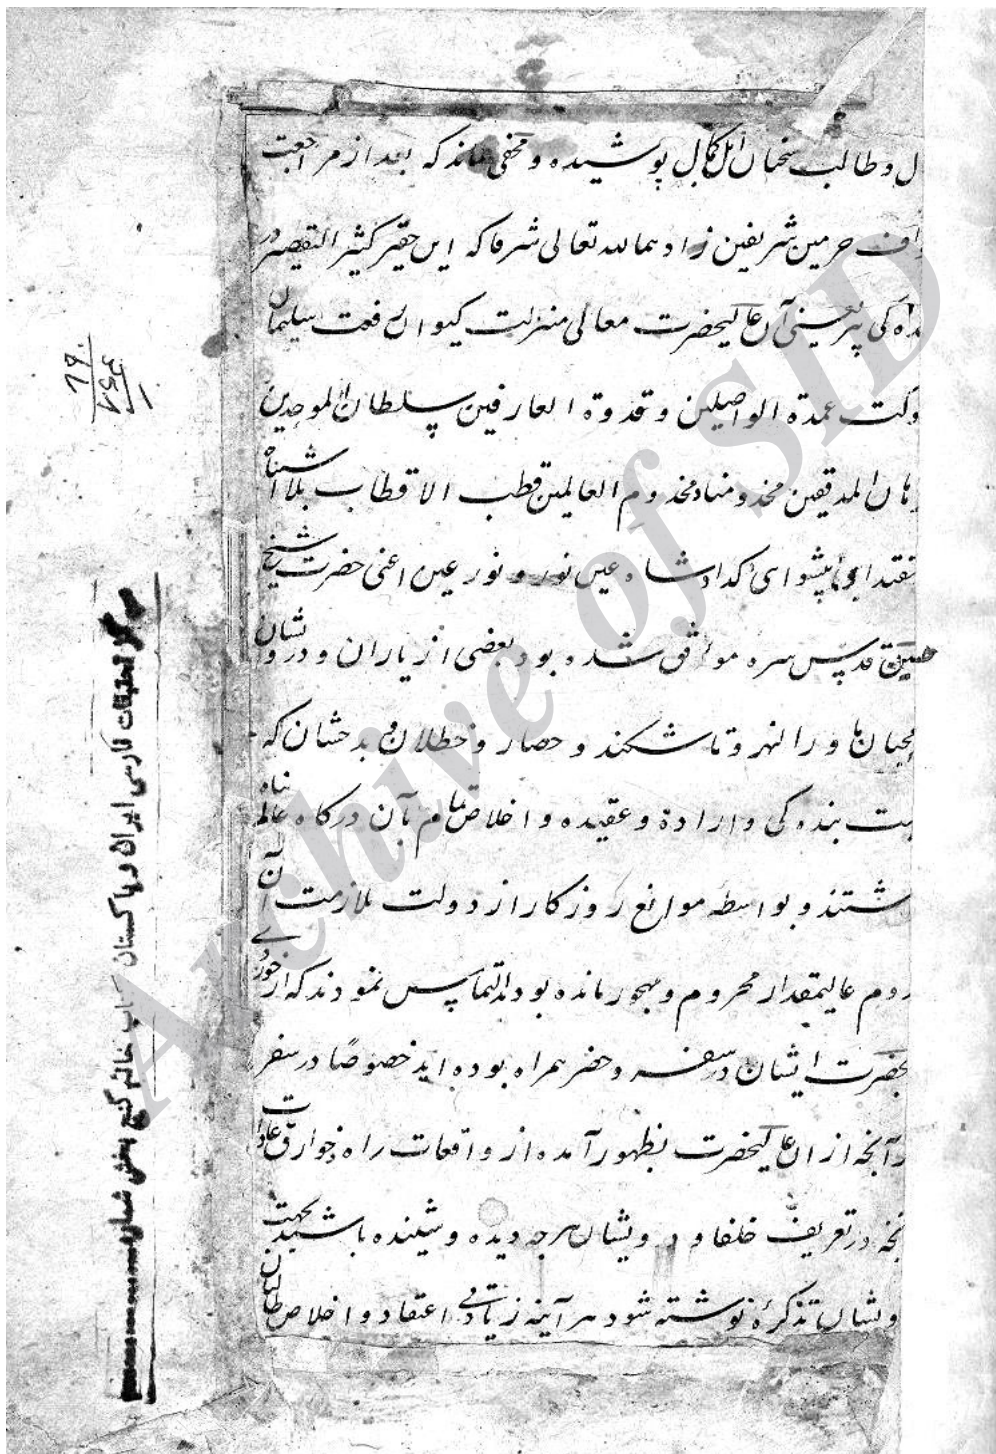 ل و طالب سخنان اهل کمال پوشیده و مخفی نماند که بعد از مراجعت
حرمین شریفین زادهما الله تعالی شرفا که این حقیر کثیر التقصیر در
پیر یعنی آن عالیحضرت معالی منزلت کیوان رفعت سلیمان
عمدة الواصلین و قدوة العارفین سلطان الموحدین
المدققین مخدومنا و مخدوم العالمین قطب الاقطاب بلا اشتباه
پیشوای گدا و شاه عین نور و نور عین اعنی حضرت شیخ
حسین قدس سره موفق شده بود بعضی از یاران و درویشان
محبان ماورالنهر و تاشکند و حصار و خطلان و بدخشان که
بندهکی و ارادة و عقیده و اخلاص تمام بآن درکاه عالم پناه
شتند و بواسطه موانع روزکار از دولت ملازمت آن
دوم عالیمقدار محروم و مهجور مانده بودند التماس نمودند که از خورد
بحضرت ایشان در سفر و حضر همراه بوده اید خصوصا در سفر
و آنچه از ان عالیحضرت بظهور آمده از واقعات راه و خوارق عادات
نچه در تعریف خلفا و درویشان هرچه دیده و شنیده باشید بجهت
ویشان تذکرۀ نوشته شود هر آینه زیادتی اعتقاد و اخلاص طالبان
مرکز تحقیقات فارسی ایران و پاکستان کتاب خانه گنج بخش شماره
Archive of SID